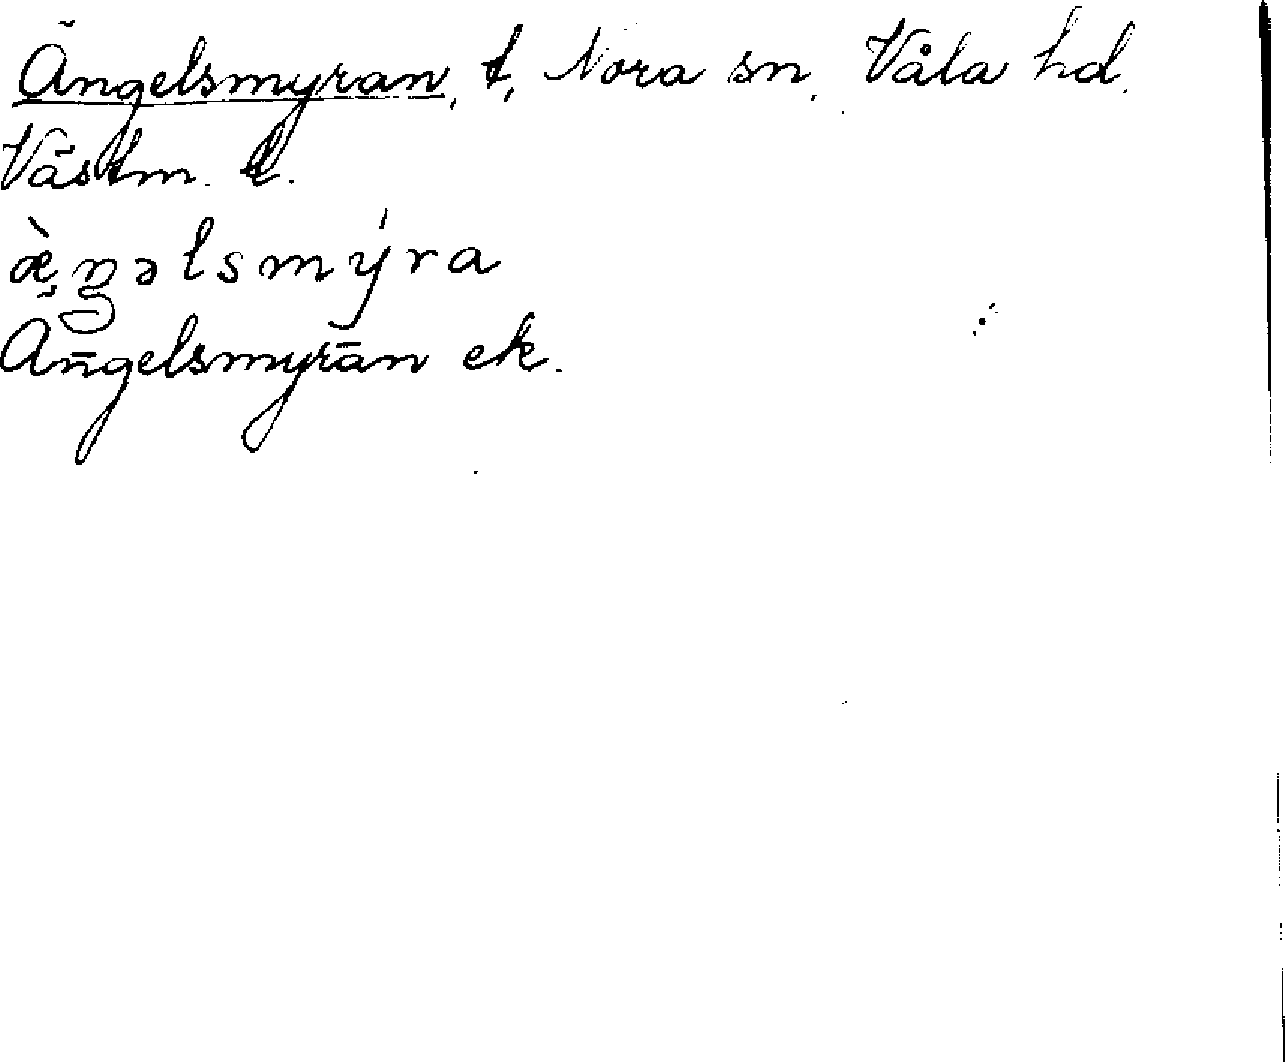 Ängelsmyran, t, Nora sn, Våla hd.
Västm. l.
æ̀ŋəlsmýra
Ängelsmyran ek.